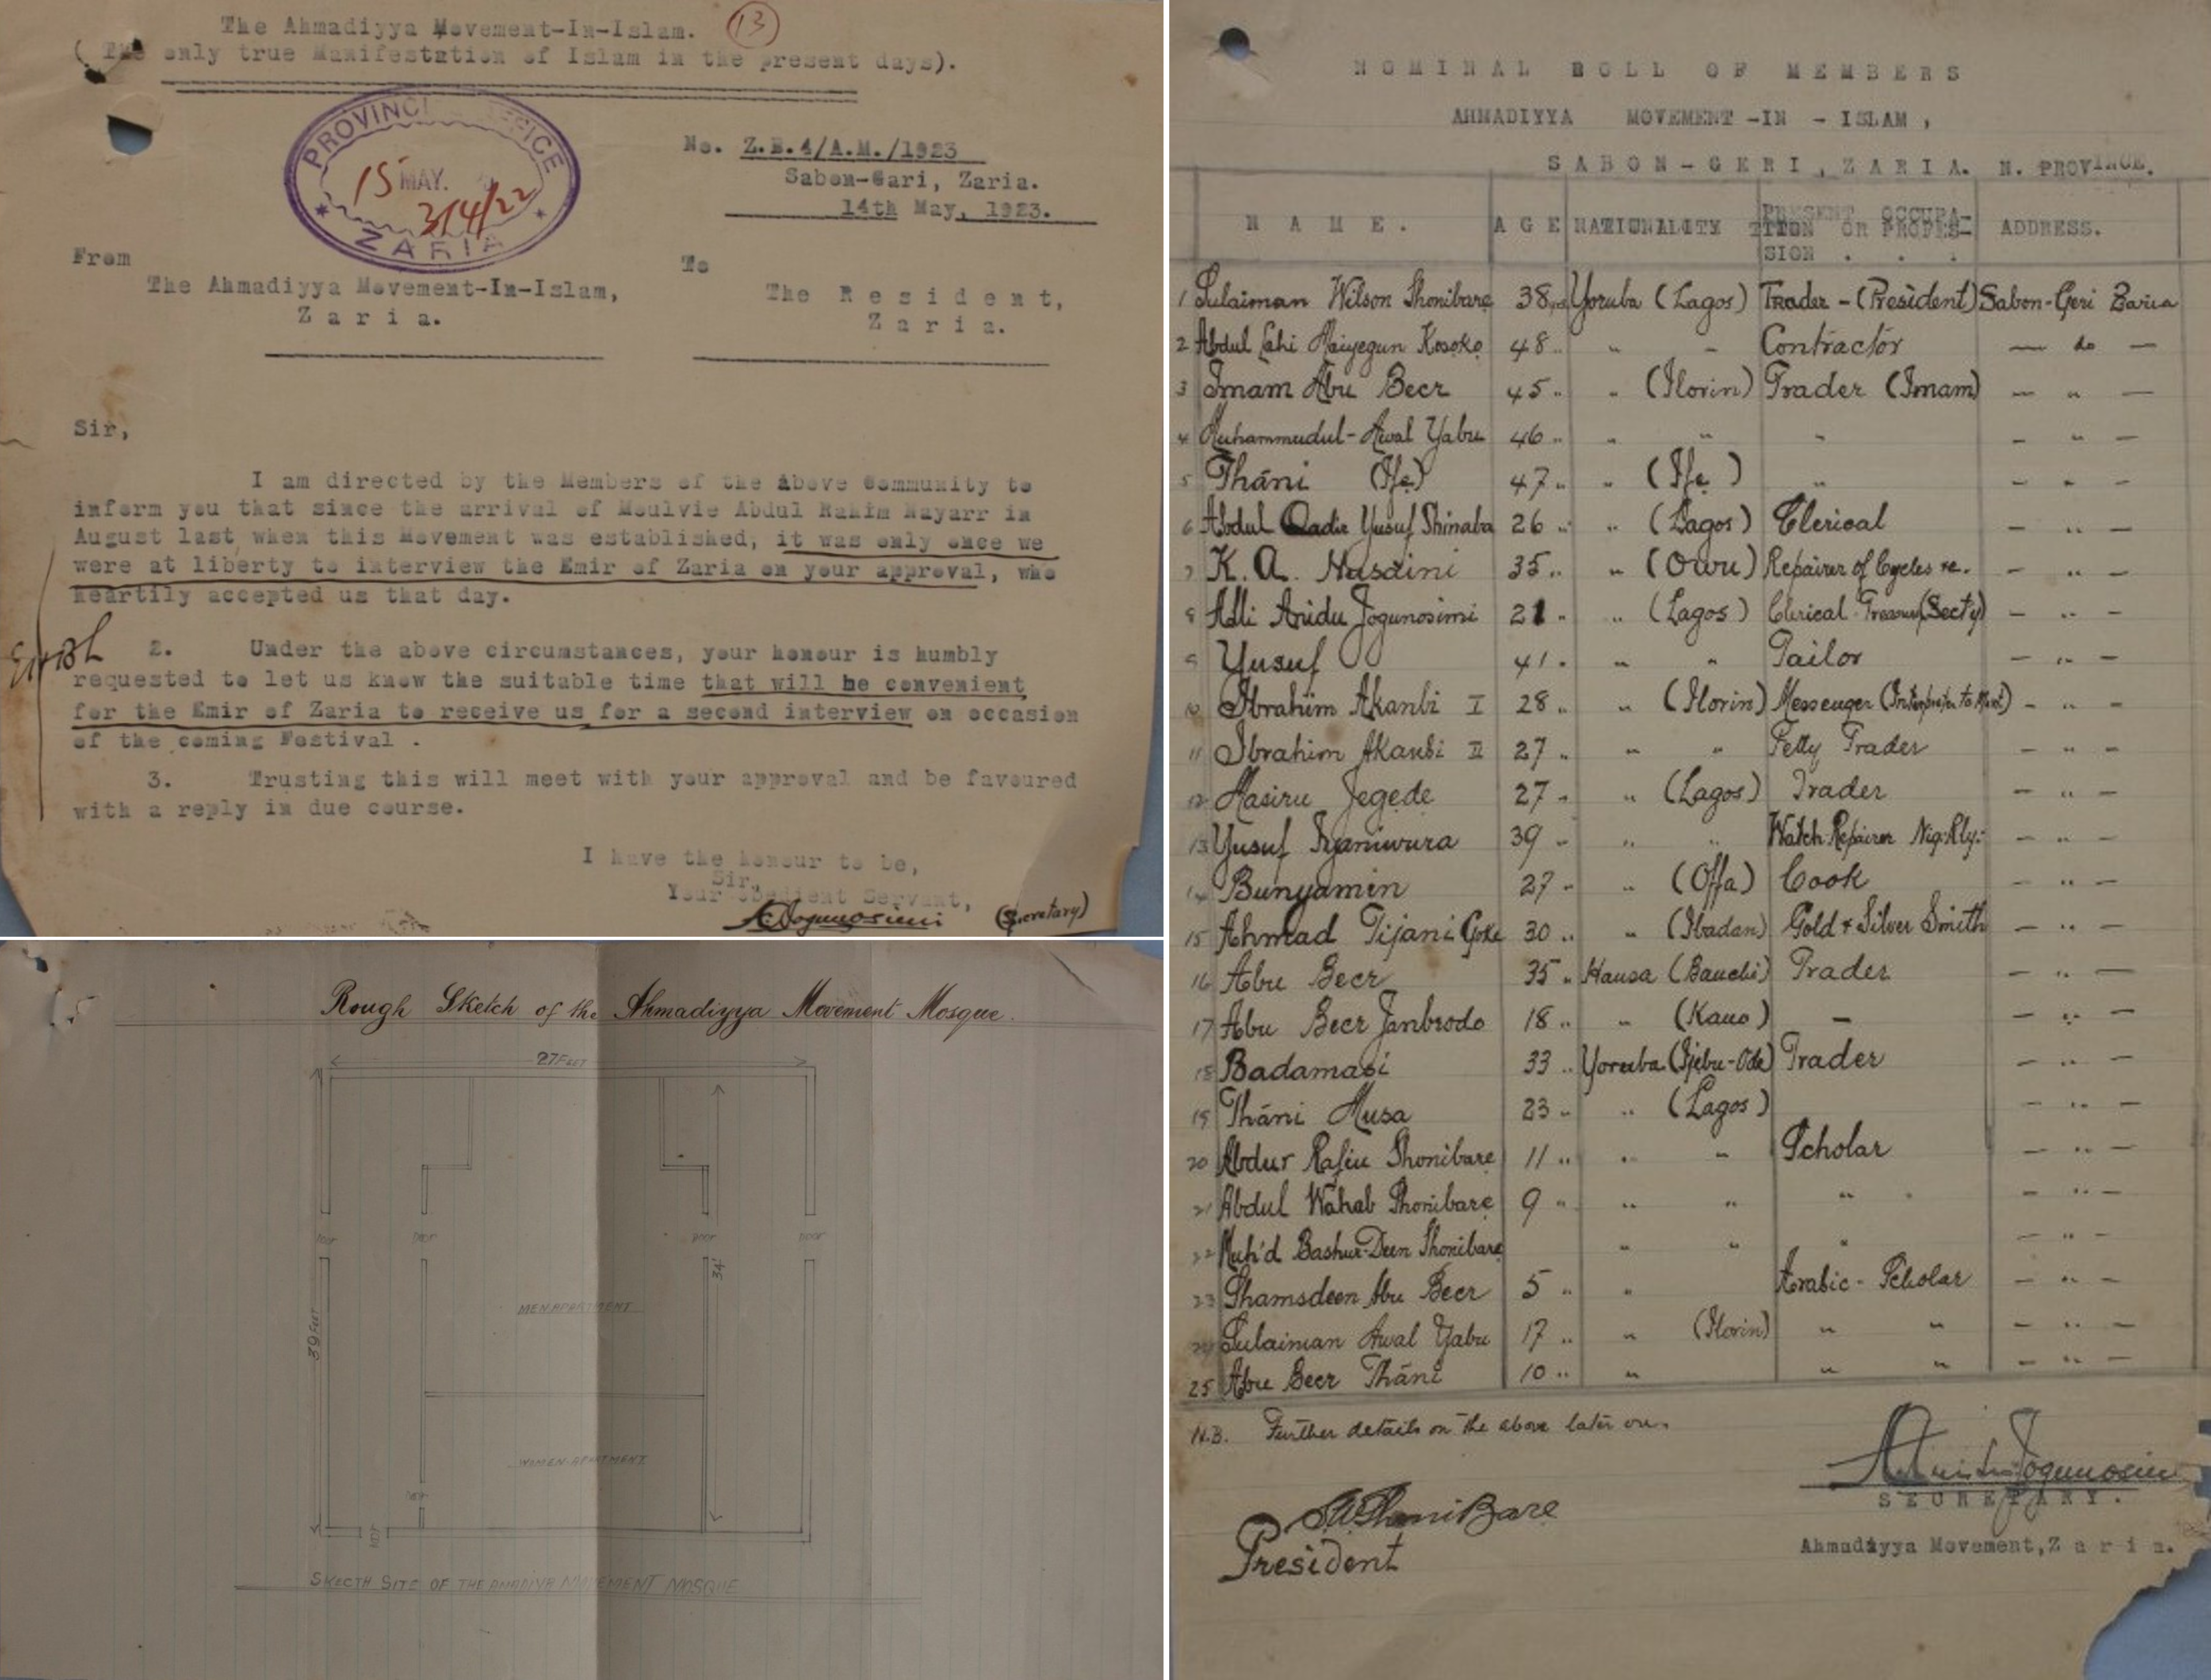 The Ahmadiyya Movement-In-Islam.
13
( The only true Manifestation of Islam in the present days).
PROVINCI OFFICE
15 MAY.
314/22
ZARIA
No. Z.E.4/A.M./1923
Sabon-Gari, Zaria.
14th May, 1923.
From
The Ahmadiyya Movement-In-Islam,
Zaria.
To
The Resident,
Zaria.
Sir,
I am directed by the Members of the above Community to
inform you that since the arrival of Moulvie Abdul Rahim Nayarr in
August last when this Movement was established, it was only once we
were at liberty to interview the Emir of Zaria on your approval, who
heartily accepted us that day.
2. Under the above circumstances, your honour is humbly
requested to let us know the suitable time that will be convenient
for the Emir of Zaria to receive us for a second interview on occasion
of the coming Festival .
3. Trusting this will meet with your approval and be favoured
with a reply in due course.
I have the honour to be,
Sir,
Your obedient Servant,
(Secretary)
Rough Sketch of the Ahmadiyya Movement Mosque.
27 FEET
DOOR DOOR DOOR DOOR
34'
39 FEET
MEN APARTMENT
WOMEN APARTMENT
SKECTH SITE OF THE AMADIYA MOVEMENT MOSQUE
NOMINAL ROLL OF MEMBERS
AHMADIYYA MOVEMENT -IN - ISLAM ,
SABON-GERI, ZARIA. N. PROVINCE.
NAME. AGE NATIONALITY PRESENT OCCUPA-
TION OR PROFES- ADDRESS.
SION . . .
1 Sulaiman Wilson Shonibare 38 yrs Yoruba (Lagos) Trader - (President) Sabon-Geri Zaria
2 Abdul Lahi Maiyegun Kosoko 48 " " " Contractor — do —
3 Imam Abu Becr 45 " " (Ilorin) Trader (Imam) — " —
4 Muhammudul-Awal Yabu 46 " " " " — " —
5 Tháni (Ife) 47 " " (Ife) " — " —
6 Abdul Qadir Yusuf Shinaba 26 " " (Lagos) Clerical — " —
7 K. A. Husaini 35 " " (Owu) Repairer of Cycles &c. — " —
8 Alli Aridu Jogunosimi 21 " " (Lagos) Clerical (Secty) — " —
9 Yusuf 41 " " " Tailor — " —
10 Ibrahim Akanbi I 28 " " (Ilorin) Messenger — " —
11 Ibrahim Akanbi II 27 " " " Petty Trader — " —
12 Masiru Jegede 27 " " (Lagos) Trader — " —
13 Yusuf Iyaniwura 39 " " " Watch Repairer Nig: Rly: — " —
14 Bunyamin 27 " " (Offa) Cook — " —
15 Ahmad Tijani Goke 30 " " (Ibadan) Gold & Silver Smith — " —
16 Abu Becr 35 " Hausa (Bauchi) Trader — " —
17 Abu Becr Janbrodo 18 " " (Kano) — — " —
18 Badamasi 33 " Yoruba (Ijebu-Ode) Trader — " —
19 Tháni Musa 23 " " (Lagos) — " —
20 Abdur Rafiu Shonibare 11 " " " Scholar — " —
21 Abdul Wahab Shonibare 9 " " " " " — " —
22 Muh'd Bashur-Deen Shonibare " " " — " —
23 Shamsdeen Abu Becr 5 " " Arabic - Scholar — " —
24 Sulaiman Awal Yabu 17 " " (Ilorin) " " — " —
25 Abu Becr Tháni 10 " " " " — " —
N.B. Further details on the above later on.
S.W. ShoniBare
President
SECRETARY.
Ahmadiyya Movement, Zaria.